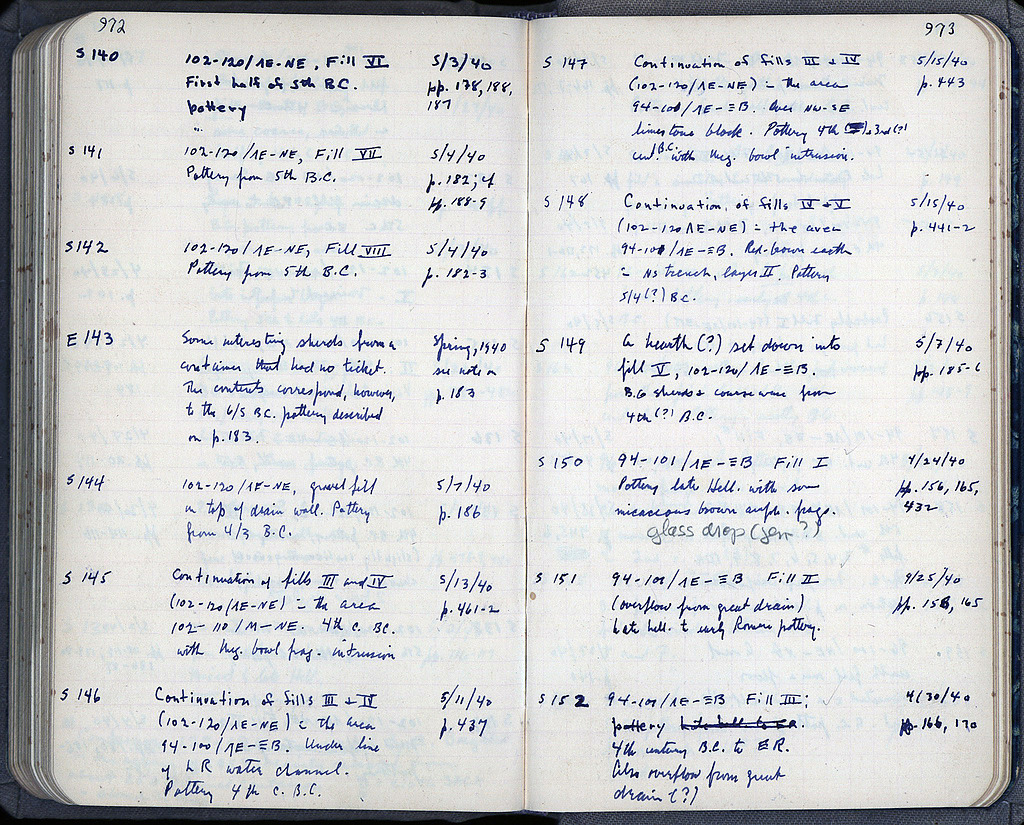 972
S 140 102-120/ΛE-NE, Fill VI 5/3/40
First half of 5th B.C. pp. 178, 188,
pottery 187
S 141 102-120/ΛE-NE, Fill VII 5/4/40
Pottery from 5th B.C. p. 182, 4
pp. 188-9
S 142 102-120/ΛE-NE, Fill VIII 5/4/40
Pottery from 5th B.C. p. 182-3
E 143 Some interesting sherds from a Spring, 1940
container that had no ticket. see note on
The contents correspond, however, p. 183
to the 6/5 B.C. pottery described
on p. 183.
S 144 102-120/ΛE-NE, gravel fill 5/7/40
on top of drain wall. Pottery p. 186
from 4/3 B.C.
S 145 Continuation of fills III and IV 5/13/40
(102-120/ΛE-NE) = the area p. 461-2
102-110/M-NE. 4th c. BC.
with Meg. bowl frag. intrusion
S 146 Continuation of fills III + IV 5/11/40
(102-120/ΛE-NE) = the area p. 437
94-100/ΛE-ΞB. Under line
of LR water channel.
Pottery 4th c. B.C.
973
S 147 Continuation of fills III + IV 5/15/40
(102-120/ΛE-NE) = the area p. 443
94-100/ΛE-ΞB. Over NW-SE
limestone block. Pottery 4th to 3rd (?)
cen. B.C. with Meg. bowl intrusion.
S 148 Continuation of fills IV + V 5/15/40
(102-120/ΛE-NE) = the area p. 441-2
94-100/ΛE-ΞB. Red-brown earth
= NS trench, layer II. Pottery
5/4 (?) B.C.
S 149 A hearth (?) set down into 5/7/40
fill V, 102-120/ΛE-ΞB. pp. 185-6
B.G sherds + coarse ware from
4th (?) B.C.
S 150 94-101/ΛE-ΞB Fill I 4/24/40
Pottery late Hell. with some pp. 156, 165,
micaceous brown amph. frags. 432
glass drop (gem?)
S 151 94-101/ΛE-ΞB Fill II 4/25/40
(overflow from great drain) pp. 158, 165
Late hell. to early Roman pottery.
S 152 94-101/ΛE-ΞB Fill III; 4/30/40
pottery late hell. to ER pp. 166, 170
4th century B.C. to ER.
Also overflow from great
drain (?)